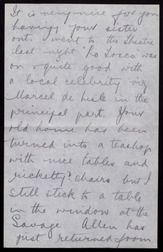 It is very nice for you
having your sister
out. I went to the theatre
last night "La Tosca" was
on - quite good with
a local celebrity viz
Marcel de in the
principal part. Your
old home has been
turned into a teashop
with nice tables and
ricketty chairs but I
still stick to a table
in the window at the
Savage. Allen has
just returned from